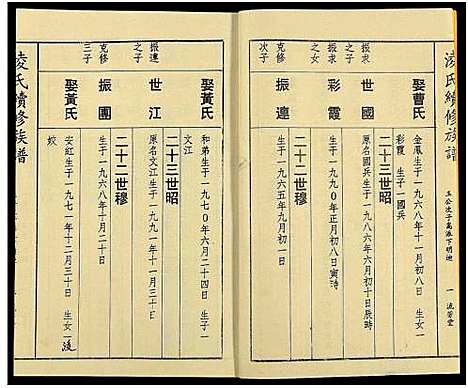 凌氏續修族譜
玉公次子萬派下明迪
一 流芳堂
娶曹氏
金鳳生于一九六八年十一月初八日 生女一
彩霞 生子一國兵
二十三世昭
振求之子
世國
原名國兵生于一九八六年六月初十日辰時
振求之女
彩霞
生于一九九〇年正月初八日寅時
二十二世穆
克修次子
振連
生于一九六五年九月初一日
娶黃氏
和弟生于一九七〇年六月二十四日 生子一
文江
二十三世昭
振連之子
世江
原名文江生于一九九一年十一月三十日
二十二世穆
克修三子
振團
生于一九六八年十月二十日
娶黃氏
安紅生于一九七一年十二月三十日 生女一淩
姣
凌氏續修族譜